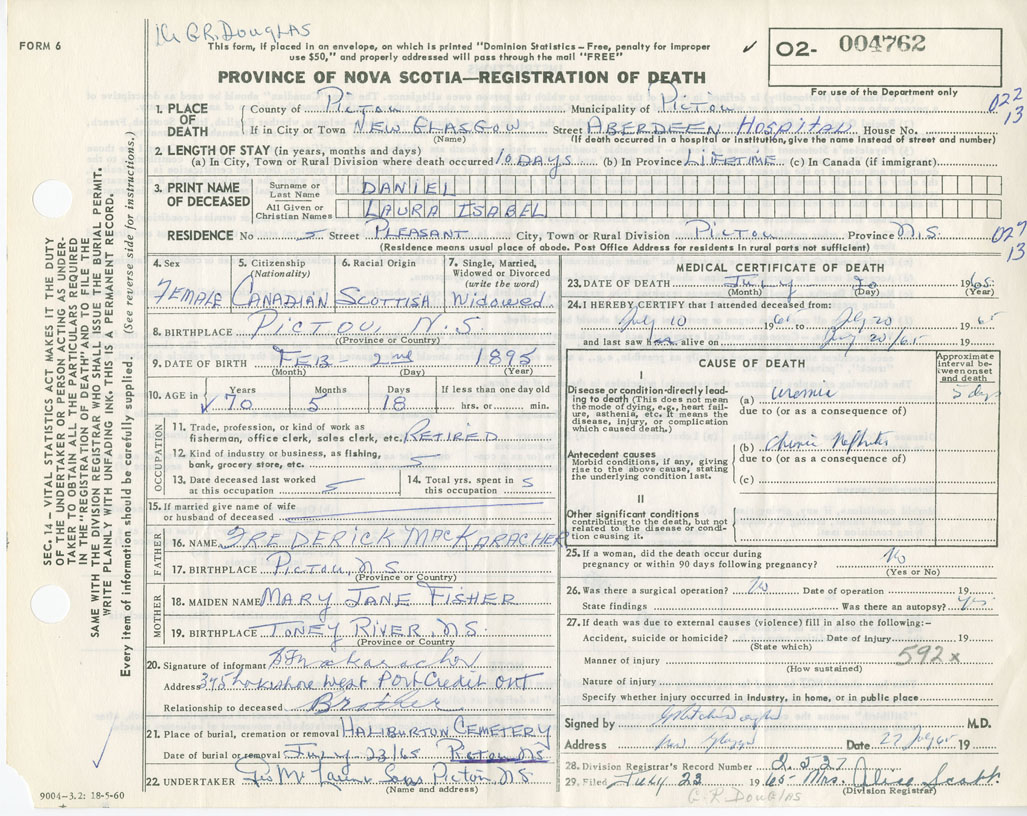 FORM 6
G.R. DOUGLAS
This form, if placed in an envelope, on which is printed "Dominion Statistics—Free, penalty for improper
use $50," and properly addressed will pass through the mail "FREE"
✓ 02- 004762
PROVINCE OF NOVA SCOTIA—REGISTRATION OF DEATH
For use of the Department only
022
13
1. PLACE OF DEATH
County of PICTOU Municipality of PICTOU
If in City or Town NEW GLASGOW Street ABERDEEN HOSPITAL House No.
(Name) (If death occurred in a hospital or institution, give the name instead of street and number)
2. LENGTH OF STAY (in years, months and days)
(a) In City, Town or Rural Division where death occurred 10 DAYS (b) In Province LIFETIME (c) In Canada (if immigrant)
3. PRINT NAME OF DECEASED
Surname or Last Name DANIEL
All Given or Christian Names LAURA ISABEL
RESIDENCE No 5 Street PLEASANT City, Town or Rural Division PICTOU Province N.S.
(Residence means usual place of abode. Post Office Address for residents in rural parts not sufficient)
029
13
4. Sex FEMALE
5. Citizenship (Nationality) CANADIAN
6. Racial Origin SCOTTISH
7. Single, Married, Widowed or Divorced (write the word) WIDOWED
8. BIRTHPLACE PICTOU, N.S.
(Province or Country)
9. DATE OF BIRTH FEB - 2nd 1895
(Month) (Day) (Year)
10. AGE in Years 70 Months 5 Days 18 If less than one day old hrs. or min.
OCCUPATION
11. Trade, profession, or kind of work as fisherman, office clerk, sales clerk, etc. RETIRED
12. Kind of industry or business, as fishing, bank, grocery store, etc.
13. Date deceased last worked at this occupation
14. Total yrs. spent in this occupation
15. If married give name of wife or husband of deceased
FATHER
16. NAME FREDERICK MACKARACHER
17. BIRTHPLACE PICTOU, N.S.
(Province or Country)
MOTHER
18. MAIDEN NAME MARY JANE FISHER
19. BIRTHPLACE TONEY RIVER, N.S.
(Province or Country)
20. Signature of informant
Address 375 Lakeshore West Port Credit ONT
Relationship to deceased Brother
21. Place of burial, cremation or removal HALIBURTON CEMETERY
Date of burial or removal JULY 23/65 PICTOU N.S.
22. UNDERTAKER Sons Pictou N.S.
(Name and address)
MEDICAL CERTIFICATE OF DEATH
23. DATE OF DEATH July 20 1965
(Month) (Day) (Year)
24. I HEREBY CERTIFY that I attended deceased from:
July 10 1965 to July 20 1965
and last saw h alive on July 20/65 19
CAUSE OF DEATH
Approximate interval between onset and death
I
Disease or condition directly leading to death (This does not mean the mode of dying, e.g., heart failure, asthenia, etc. It means the disease, injury, or complication which caused death.)
(a) Uremia 5 days
due to (or as a consequence of)
Antecedent causes
Morbid conditions, if any, giving rise to the above cause, stating the underlying condition last.
(b) Chronic Nephritis
due to (or as a consequence of)
(c)
II
Other significant conditions
contributing to the death, but not related to the disease or condition causing it.
25. If a woman, did the death occur during pregnancy or within 90 days following pregnancy? No
(Yes or No)
26. Was there a surgical operation? No Date of operation 19
State findings Was there an autopsy? Yes
27. If death was due to external causes (violence) fill in also the following:-
Accident, suicide or homicide? Date of injury 19
(State which)
Manner of injury 592 x
(How sustained)
Nature of injury
Specify whether injury occurred in industry, in home, or in public place
Signed by M.D.
Address New Glasgow Date 22 July 65 19
28. Division Registrar's Record Number 2537
29. Filed July 23 1965 Mrs. Alice Scott
(Division Registrar)
G.R. DOUGLAS
9004-3.2: 18-5-60
SEC. 14 — VITAL STATISTICS ACT MAKES IT THE DUTY
OF THE UNDERTAKER OR PERSON ACTING AS UNDER-
TAKER TO OBTAIN ALL THE PARTICULARS REQUIRED
IN THE "REGISTRATION OF DEATH" AND TO FILE THE
SAME WITH THE DIVISION REGISTRAR WHO SHALL ISSUE THE BURIAL PERMIT.
WRITE PLAINLY WITH UNFADING INK. THIS IS A PERMANENT RECORD.
Every item of information should be carefully supplied. (See reverse side for instructions.)